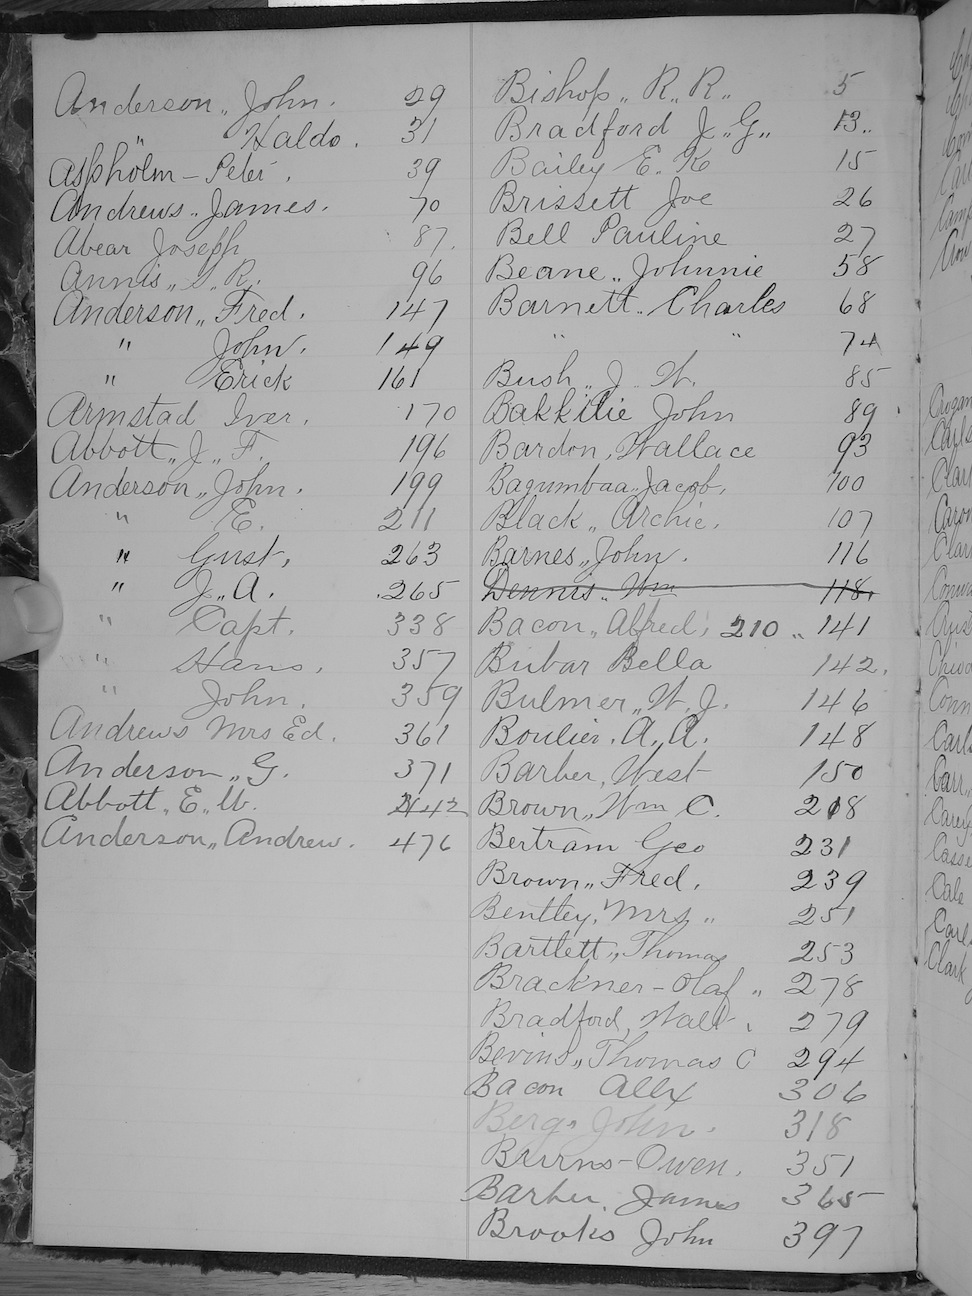 Anderson,, John. 29
" Haldo. 31
Aspholm - Peter. 39
Andrews,, James. 70
Abear Joseph 87.
Annis,, S. R. 96
Anderson,, Fred. 147
" John. 149
" Erick 161
Armstad Iver. 170
Abbott,, J,, F. 196
Anderson,, John. 199
" E. 211
" Gust. 263
" J,, A. 265
" Capt. 338
" Hans. 357
" John. 359
Andrews Mrs Ed. 361
Anderson,, G. 371
Abbott,, E,, W. 442
Anderson,, Andrew. 476
Bishop,, R,, R,, 5
Bradford J,, G,, 13..
Bailey E. K 15
Brissett Joe 26
Bell Pauline 27
Beane,, Johnnie 58
Barnett,, Charles 68
" " 74
Bush,, J,, W. 85
Bakkilie John 89
Bardon, Wallace 93
Bagumbaa,, Jacob. 100
Black,, Archie. 107
Barnes,, John. 116
Dennis,, Wm 118.
Bacon,, Alfred, 210 ,, 141
Bubar Bella 142.
Bulmer,, W. J. 146
Boulier. A. A. 148
Barber, West 150
Brown,, Wm C. 218
Bertram Geo 231
Brown,, Fred. 239
Bentley, Mrs ,, 251
Bartlett,, Thomas 253
Brackner - Olaf ,, 278
Bradford, Walt. 279
Bevins,, Thomas C 294
Bacon Allx 306
Berg, John. 318
Burns - Owen. 351
Barber, James 365
Brooks John 397